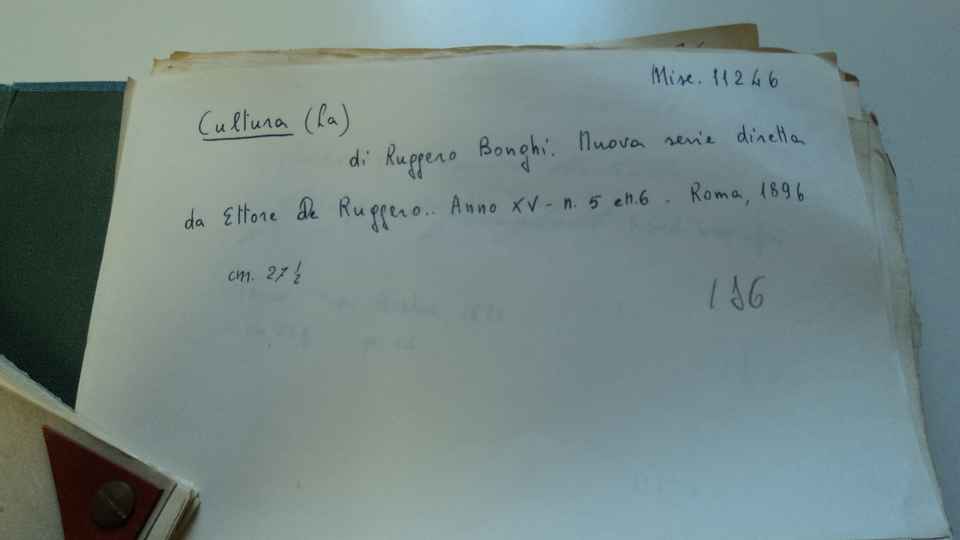 Misc. 11246
Cultura (La)
di Ruggero Bonghi. Nuova serie diretta
da Ettore De Ruggero.. Anno XV - n. 5 e n.6 . Roma, 1896
cm. 27 ½